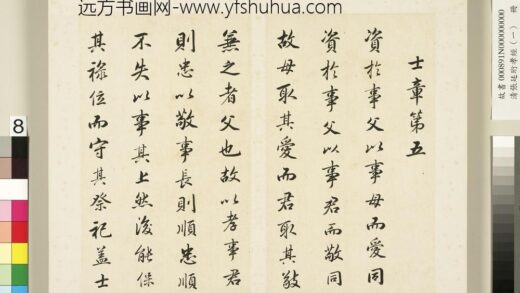 远方书画网-www.yfshuhua.com
故書000891N000000000 冊
孝經（一）
士章第五
資於事父以事母而愛同
資於事父以事君而敬同
故母取其愛而君取其敬
兼之者父也故以孝事君
則忠以敬事長則順忠順
不失以事其上然後能保
其祿位而守其祭祀盖士
8